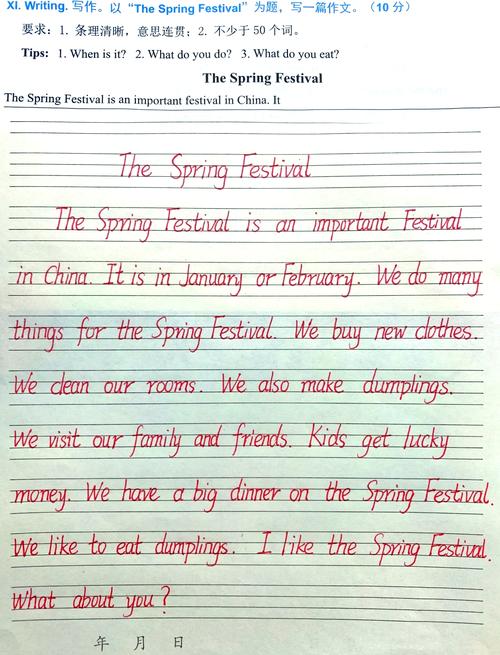 XI. Writing. 写作。以“The Spring Festival”为题，写一篇作文。（10 分）
要求：1. 条理清晰，意思连贯；2. 不少于 50 个词。
Tips: 1. When is it? 2. What do you do? 3. What do you eat?
The Spring Festival
The Spring Festival is an important festival in China. It
The Spring Festival
The Spring Festival is an important Festival
in China. It is in January or February. We do many
things for the Spring Festival. We buy new clothes.
We clean our rooms. We also make dumplings.
We visit our family and friends. Kids get lucky
money. We have a big dinner on the Spring Festival.
We like to eat dumplings. I like the Spring Festival.
What about you?
年 月 日